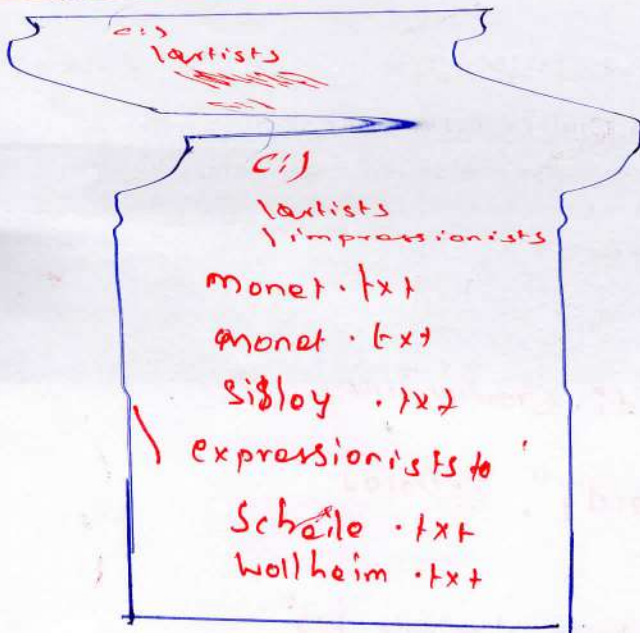 c:\
\artists
c:\
\artists
\impressionists
monet.txt
monet.txt
sisley.txt
\expressionists to
Scheile.txt
wollheim.txt